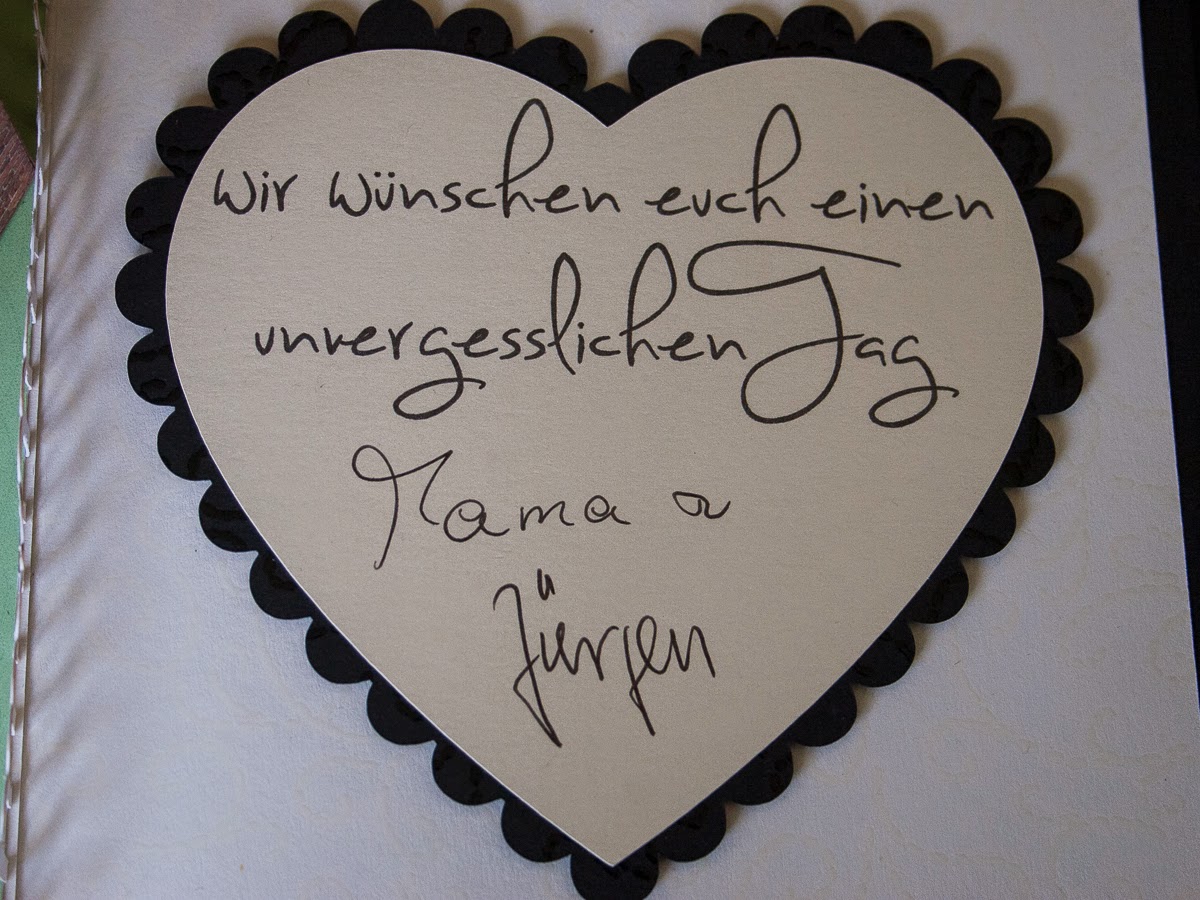 Wir wünschen euch einen
unvergesslichen Tag
Mama &
Jürgen